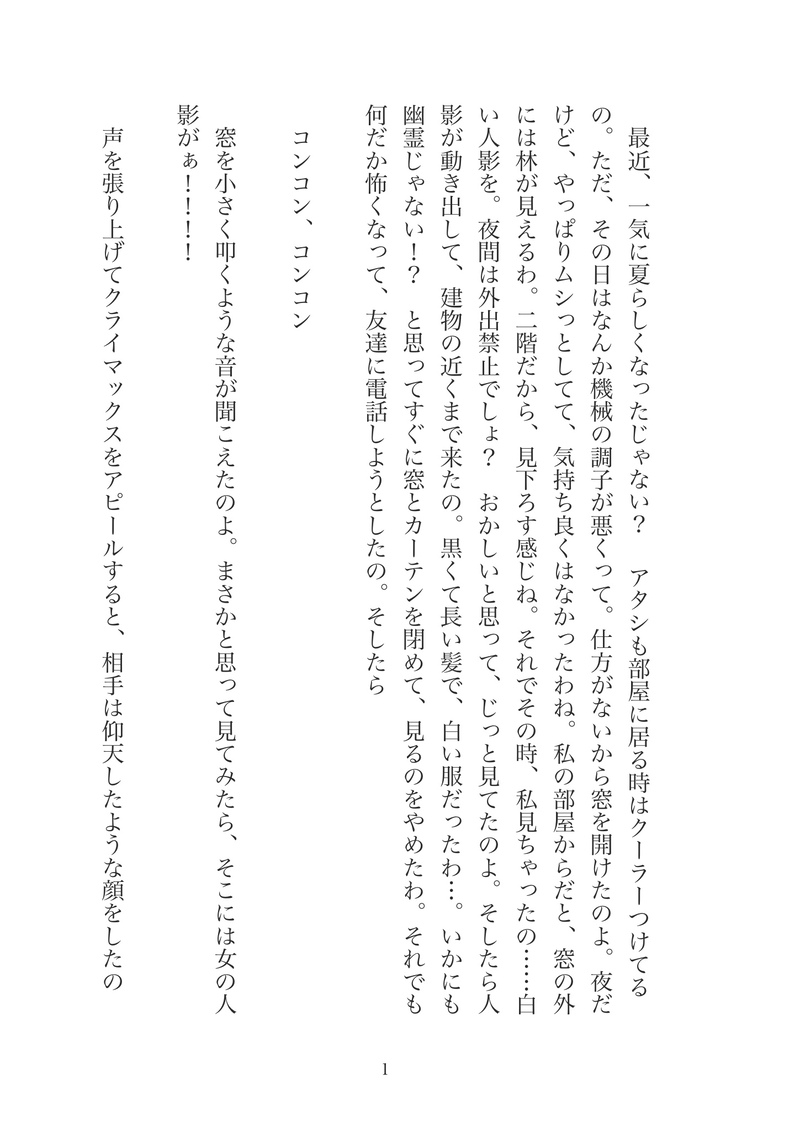 最近、一気に夏らしくなったじゃない？　アタシも部屋に居る時はクーラーつけてる
の。ただ、その日はなんか機械の調子が悪くって。仕方がないから窓を開けたのよ。夜だ
けど、やっぱりムシっとしてて、気持ち良くはなかったわね。私の部屋からだと、窓の外
には林が見えるわ。二階だから、見下ろす感じね。それでその時、私見ちゃったの……白
い人影を。夜間は外出禁止でしょ？　おかしいと思って、じっと見てたのよ。そしたら人
影が動き出して、建物の近くまで来たの。黒くて長い髪で、白い服だったわ…。いかにも
幽霊じゃない！？　と思ってすぐに窓とカーテンを閉めて、見るのをやめたわ。それでも
何だか怖くなって、友達に電話しようとしたの。そしたら
　コンコン、コンコン
　窓を小さく叩くような音が聞こえたのよ。まさかと思って見てみたら、そこには女の人
影がぁ！！！！
　声を張り上げてクライマックスをアピールすると、相手は仰天したような顔をしたの
1